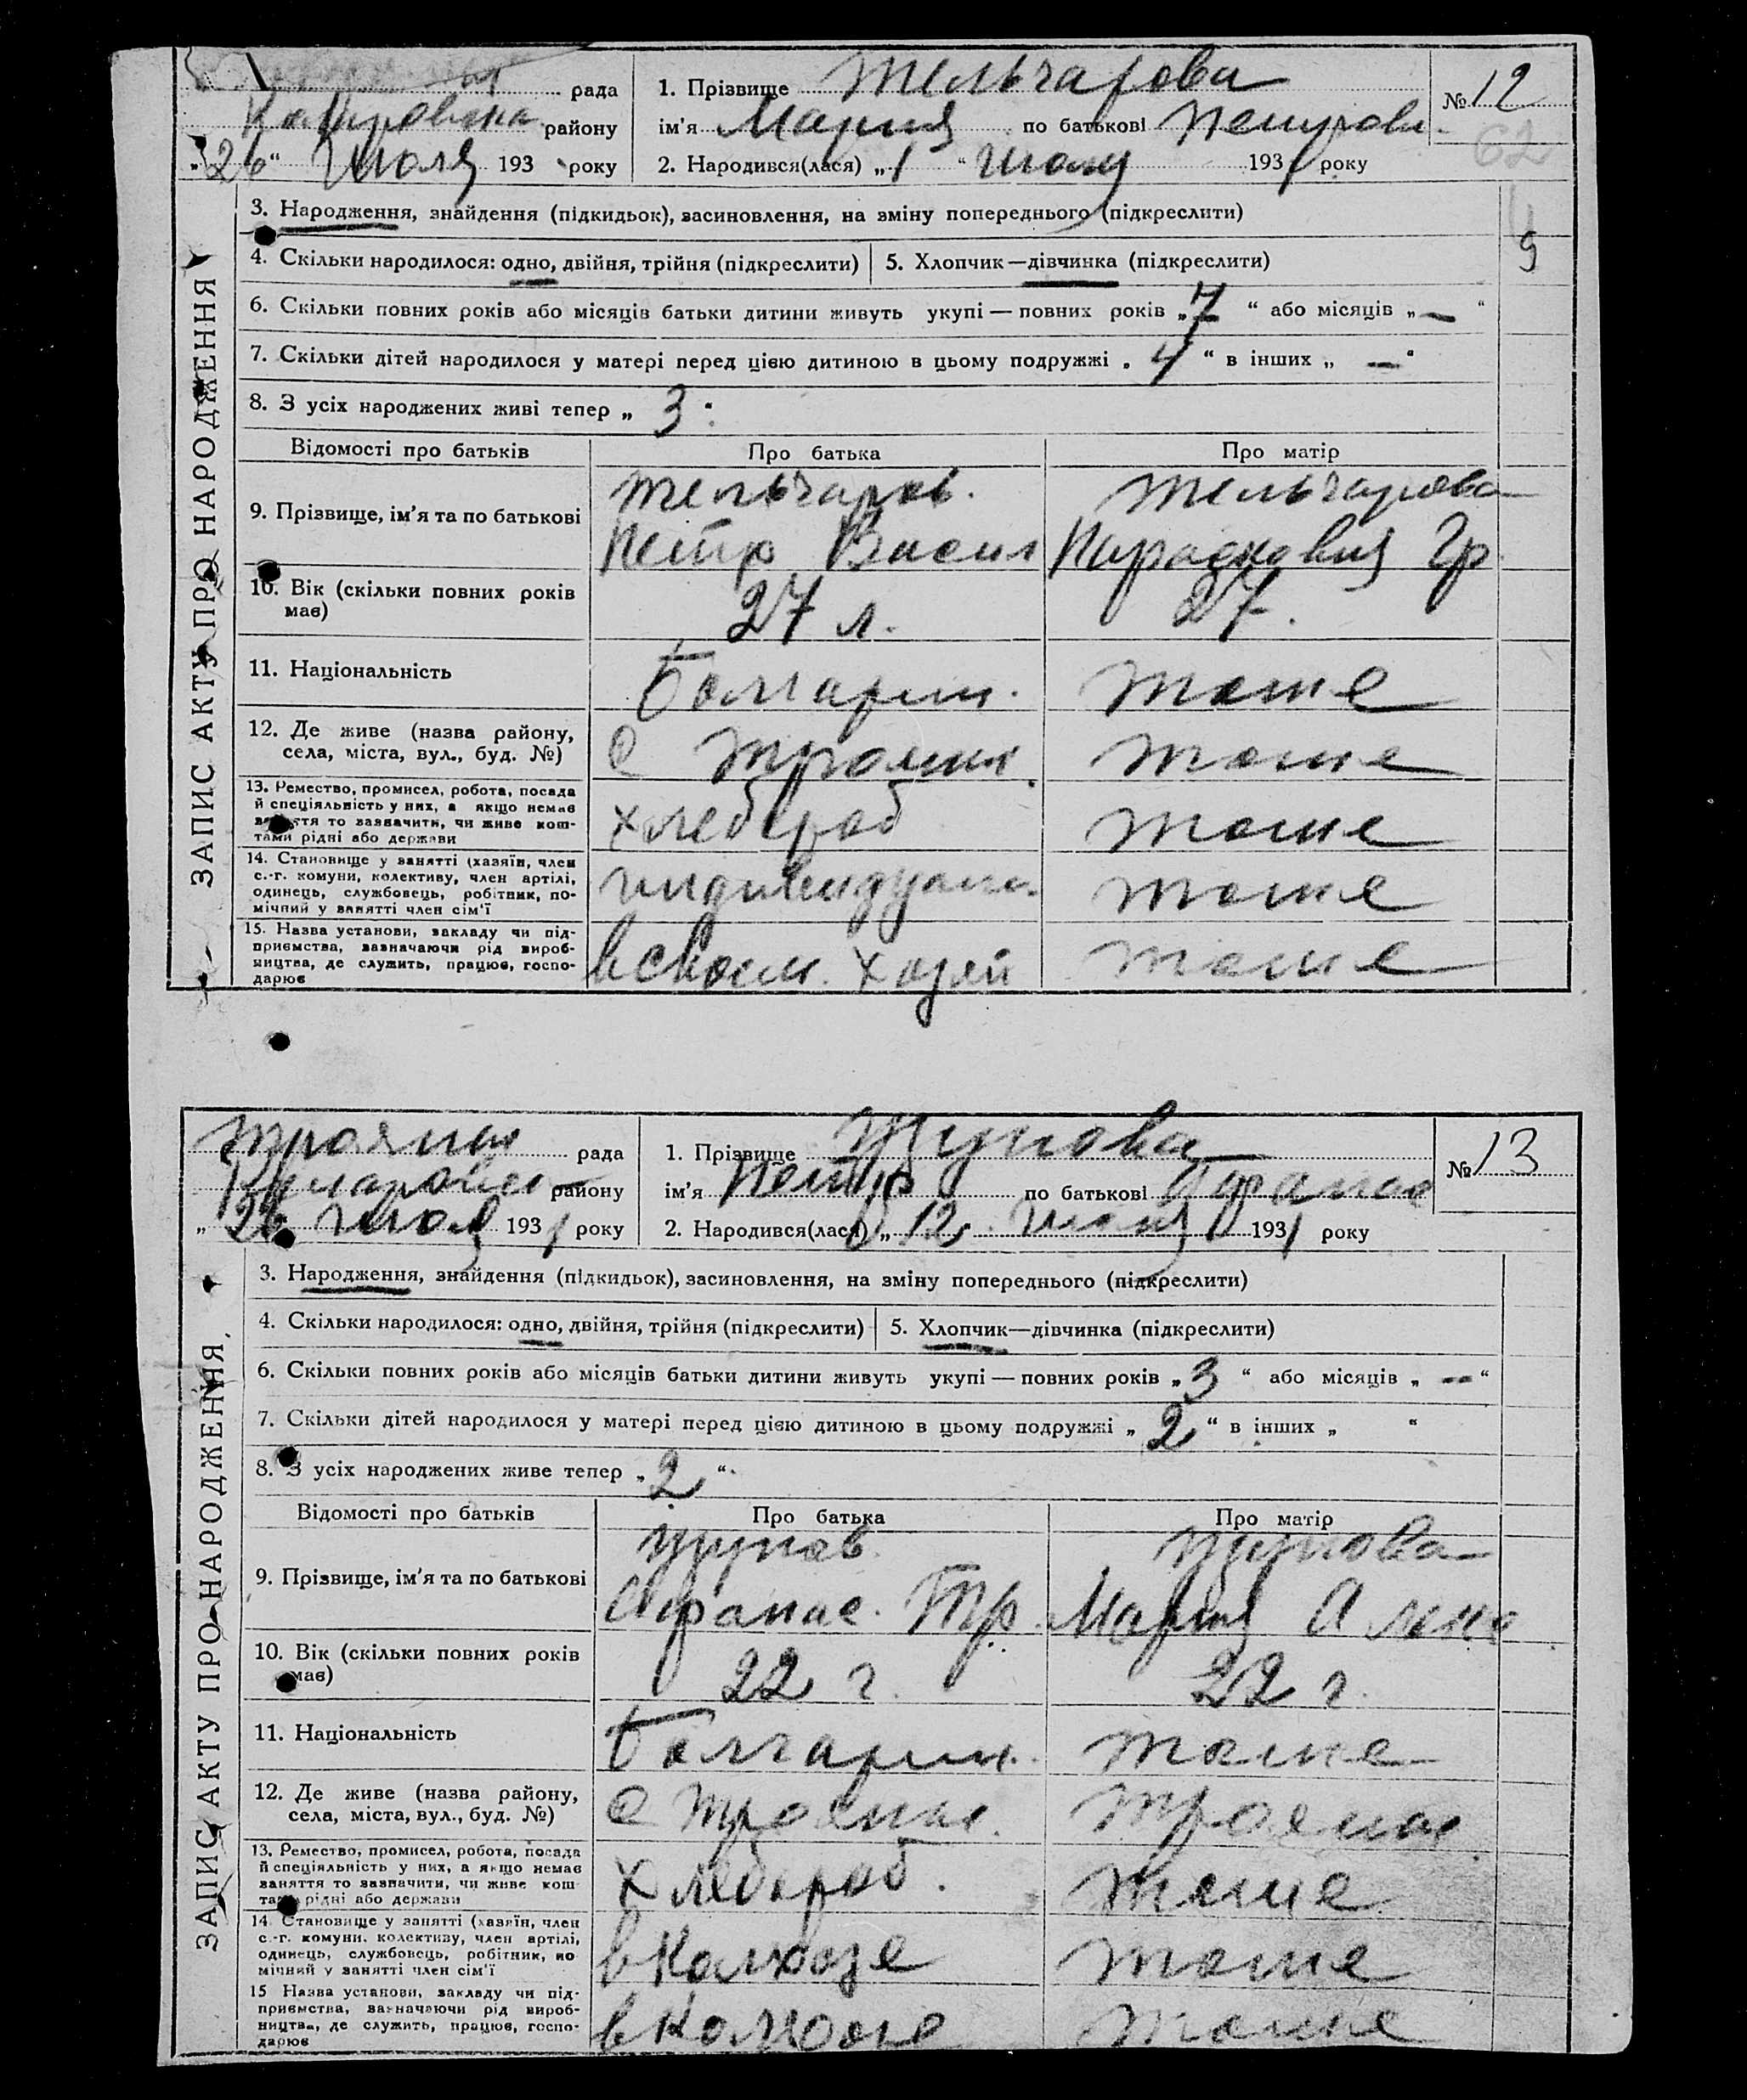 рада
району
"26" Июля 193 року
1. Прізвище Тельчарова
ім'я Мария по батькові Петрова
2. Народився(лася) „1“ Июля 1931 року
№ 12
62
ЗАПИС АКТУ ПРО НАРОДЖЕННЯ
3. Народження, знайдення (підкидьок), засиновлення, на зміну попереднього (підкреслити)
9
4. Скільки народилося: одно, двійня, трійня (підкреслити)
5. Хлопчик—дівчинка (підкреслити)
6. Скільки повних років або місяців батьки дитини живуть укупі — повних років „7“ або місяців „—“
7. Скільки дітей народилося у матері перед цією дитиною в цьому подружжі „4“ в інших „—“
8. З усіх народжених живі тепер „3“
Відомості про батьків Про батька Про матір
9. Прізвище, ім'я та по батькові
Тельчаров. Тельчарова
Петро Васил Парасковия Гр.
10. Вік (скільки повних років має)
27 л. 27.
11. Національність
Болгарин. тоже
12. Де живе (назва району,
села, міста, вул., буд. №)
с Трояни. тоже
13. Ремество, промисел, робота, посада
й спеціяльність у них, а якщо немає
заняття то зазначити, чи живе кош-
тами рідні або держави
хлебороб тоже
14. Становище у занятті (хазяїн, член
с.-г. комуни, колективу, член артілі,
одинець, службовець, робітник, по-
мічний у занятті член сім'ї
индивидуал. тоже
15. Назва установи, закладу чи під-
приємства, зазначаючи рід вироб-
ництва, де служить, працює, госпо-
дарює
в своем. хозяй тоже
Трояны рада
району
„26“ Июля 1931 року
1. Прізвище Узунова
ім'я Петро по батькові Афанас
2. Народився(лася) „12“ Июля 1931 року
№ 13
ЗАПИС АКТУ ПРО НАРОДЖЕННЯ.
3. Народження, знайдення (підкидьок), засиновлення, на зміну попереднього (підкреслити)
4. Скільки народилося: одно, двійня, трійня (підкреслити)
5. Хлопчик—дівчинка (підкреслити)
6. Скільки повних років або місяців батьки дитини живуть укупі — повних років „3“ або місяців „—“
7. Скільки дітей народилося у матері перед цією дитиною в цьому подружжі „2“ в інших „ “
8. З усіх народжених живе тепер „2“
Відомості про батьків Про батька Про матір
9. Прізвище, ім'я та по батькові
Узунов. Узунова
Афанас. Тр. Мария
10. Вік (скільки повних років має)
22 г. 22 г.
11. Національність
Болгарин. тоже
12. Де живе (назва району,
села, міста, вул., буд. №)
с Трояны. Трояны
13. Ремество, промисел, робота, посада
й спеціяльність у них, а якщо немає
заняття то зазначити, чи живе кош-
тами рідні або держави
хлебороб. тоже
14. Становище у занятті (хазяїн, член
с.-г. комуни, колективу, член артілі,
одинець, службовець, робітник, по-
мічний у занятті член сім'ї
в колхозе тоже
15 Назва установи, закладу чи під-
приємства, зазначаючи рід вироб-
ництва, де служить, працює, госпо-
дарює
в колхозе тоже